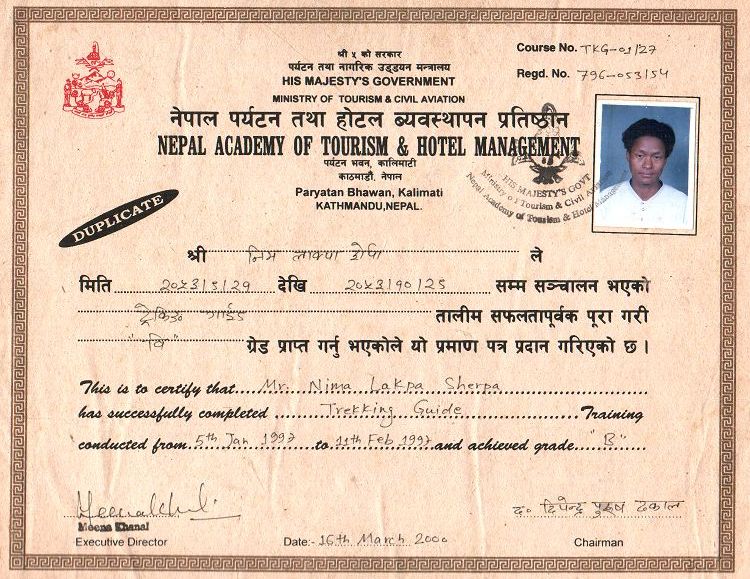 श्री ५ को सरकार
पर्यटन तथा नागरिक उड्डयन मन्त्रालय
HIS MAJESTY'S GOVERNMENT
MINISTRY OF TOURISM & CIVIL AVIATION
नेपाल पर्यटन तथा होटल ब्यवस्थापन प्रतिष्ठान
NEPAL ACADEMY OF TOURISM & HOTEL MANAGEMENT
पर्यटन भवन, कालिमाटी
काठमाडौं, नेपाल
Paryatan Bhawan, Kalimati
KATHMANDU, NEPAL.
Course No. TKG-01/27
Regd. No. 796-053/54
HIS MAJESTY'S GOVT
Ministry of Tourism & Civil Aviation
Nepal Academy of Tourism & Hotel
DUPLICATE
श्री निम लाक्पा शेर्पा ले
मिति देखि सम्म सञ्चालन भएको
ट्रेकिङ गाईड तालीम सफलतापूर्वक पूरा गरी
"वि" ग्रेड प्राप्त गर्नु भएकोले यो प्रमाण पत्र प्रदान गरिएको छ ।
This is to certify that Mr. Nima Lakpa Sherpa
has successfully completed Trekking Guide Training
conducted from 5th Jan 1997 to 11th Feb 1997 and achieved grade "B"
Meena Khanal
Executive Director
Date:- 16th March 2000
द॰ दिपेन्द्र पुरुष ढकाल
Chairman